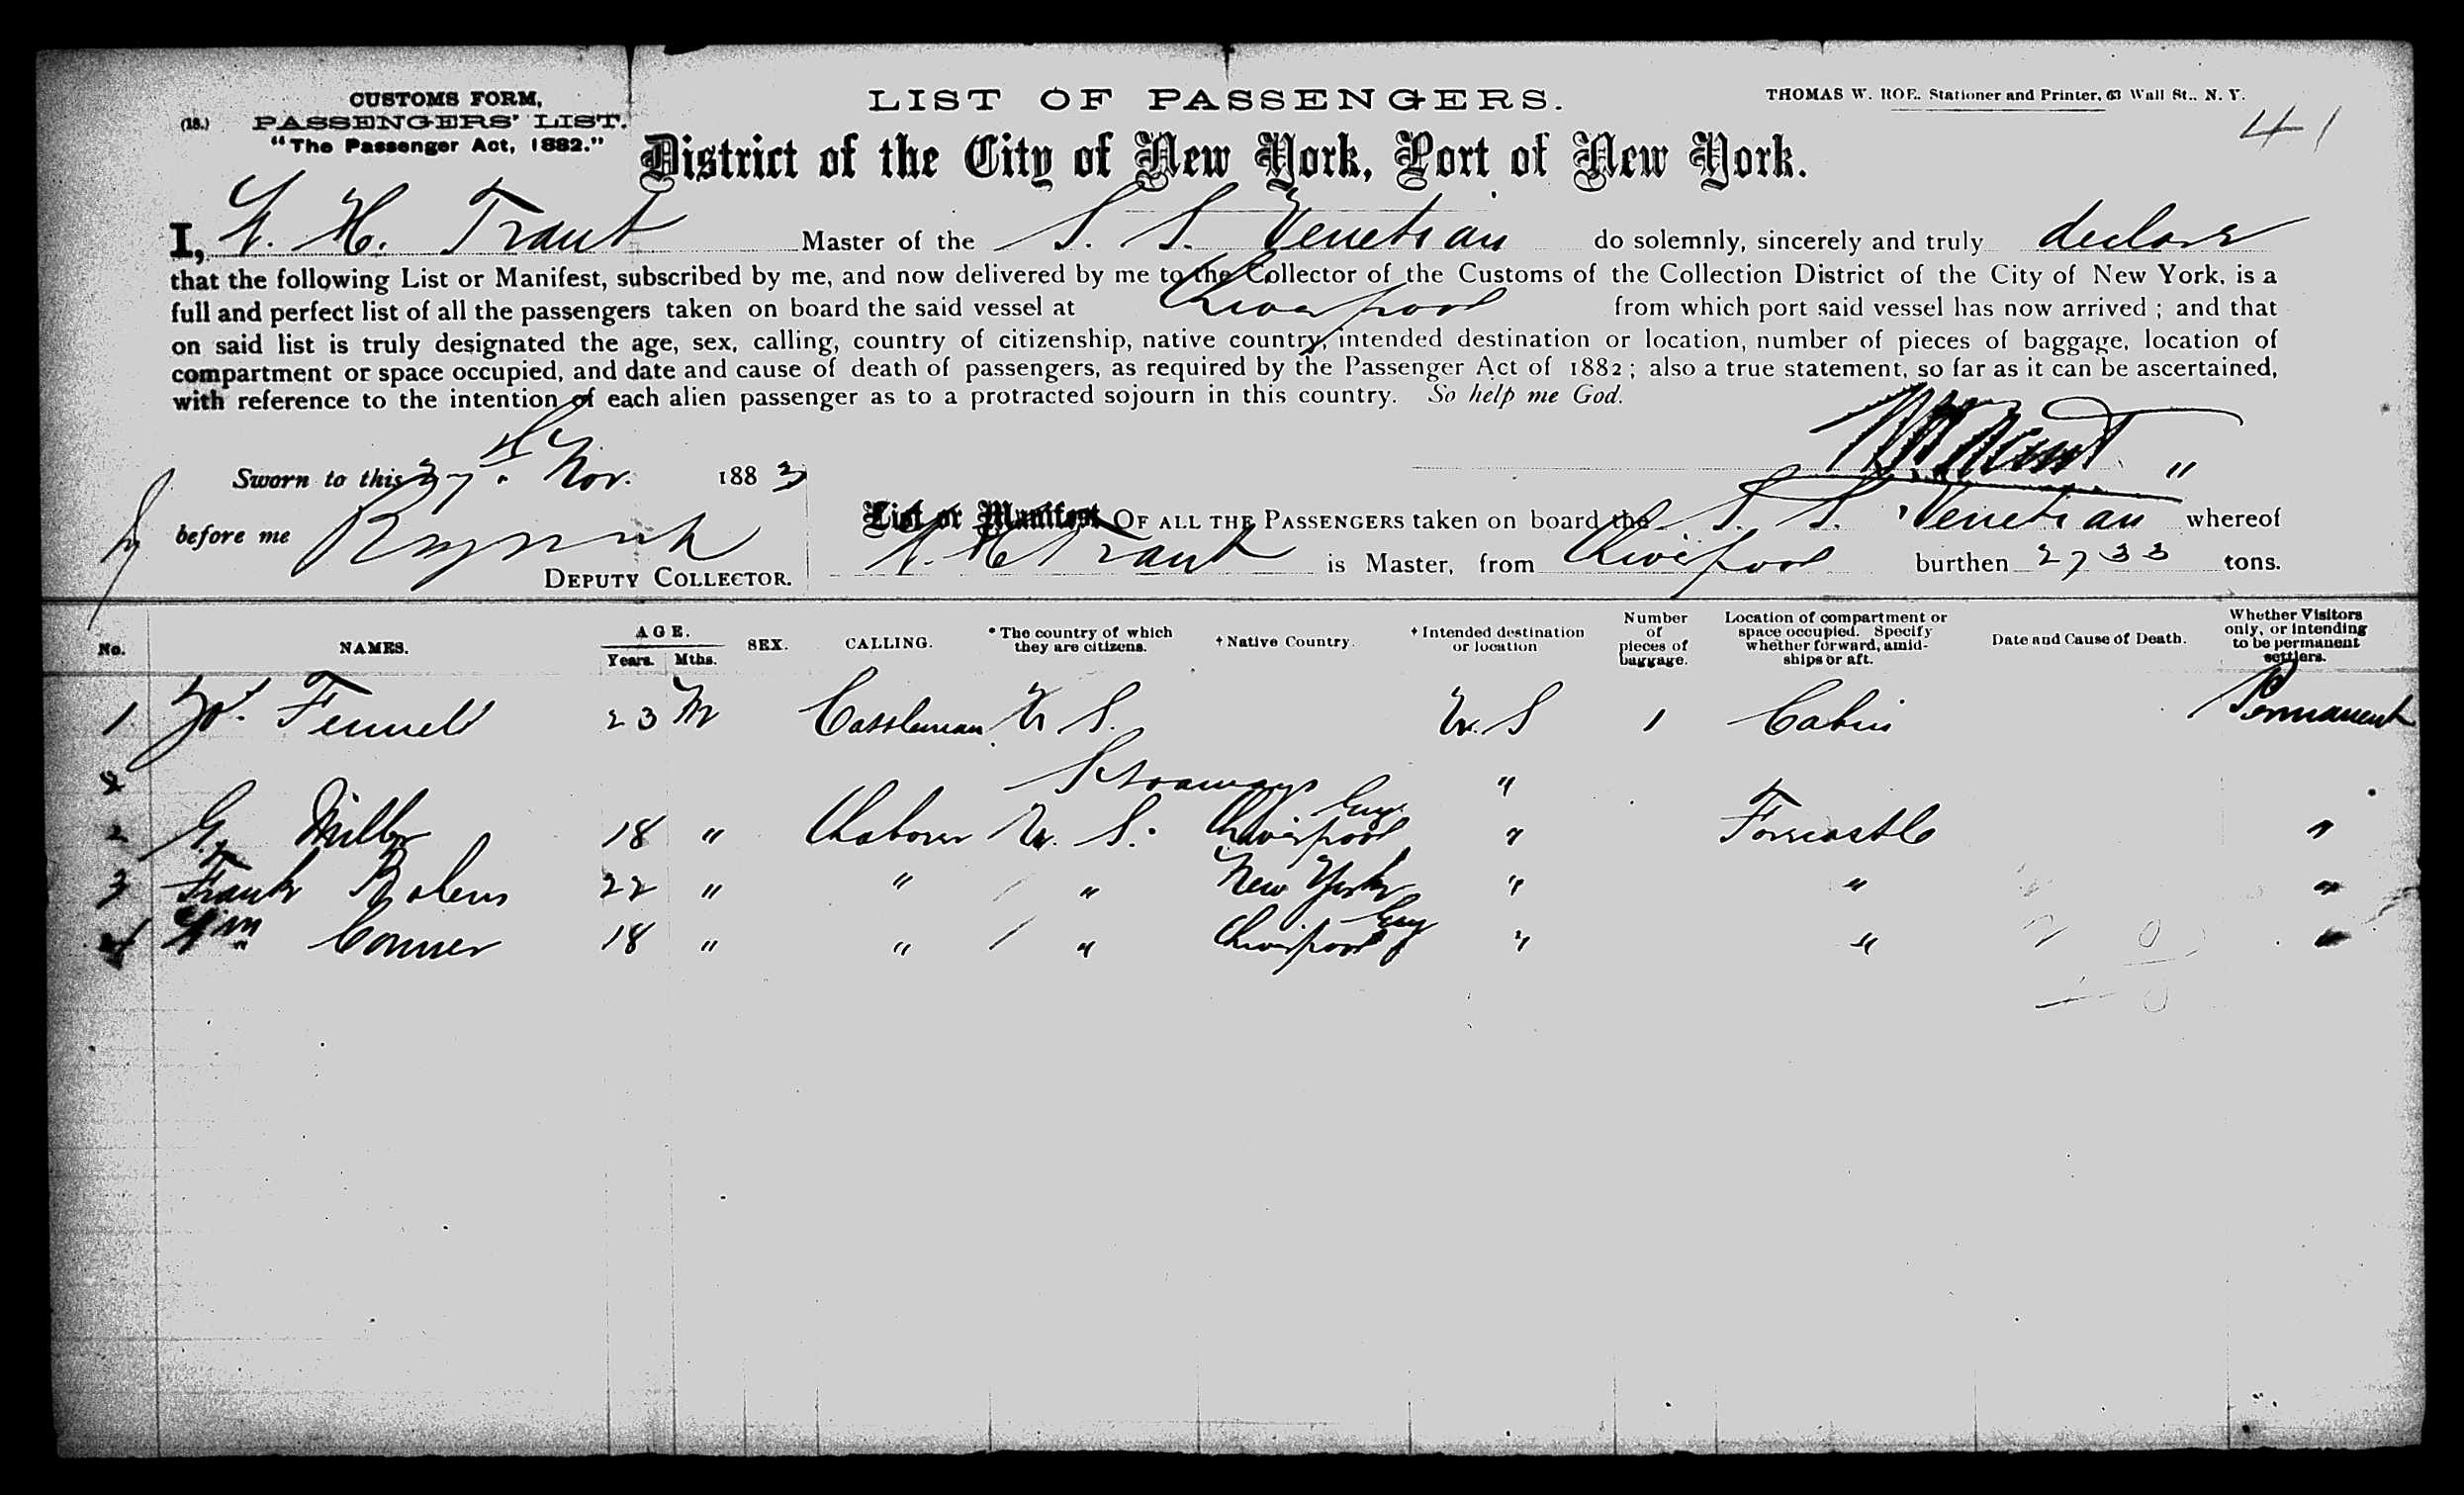 CUSTOMS FORM,
(18.) PASSENGERS' LIST.
"The Passenger Act, 1882."
LIST OF PASSENGERS.
THOMAS W. ROE, Stationer and Printer, 63 Wall St., N. Y.
41
District of the City of New York, Port of New York.
I, W. H. Trant Master of the S. S. Venetian do solemnly, sincerely and truly declare
that the following List or Manifest, subscribed by me, and now delivered by me to the Collector of the Customs of the Collection District of the City of New York, is a
full and perfect list of all the passengers taken on board the said vessel at Liverpool from which port said vessel has now arrived ; and that
on said list is truly designated the age, sex, calling, country of citizenship, native country, intended destination or location, number of pieces of baggage, location of
compartment or space occupied, and date and cause of death of passengers, as required by the Passenger Act of 1882 ; also a true statement, so far as it can be ascertained,
with reference to the intention of each alien passenger as to a protracted sojourn in this country. So help me God.
Sworn to this 27th Nov. 1883
before me
DEPUTY COLLECTOR.
List or Manifest OF ALL THE PASSENGERS taken on board the S. S. Venetian whereof
W. H. Trant is Master, from Liverpool burthen 2733 tons.
No. NAMES. AGE. Years. Mths. SEX. CALLING. * The country of which they are citizens. † Native Country. † Intended destination or location Number of pieces of baggage. Location of compartment or space occupied. Specify whether forward, amidships or aft. Date and Cause of Death. Whether Visitors only, or intending to be permanent settlers.
1 Fennell 23 M Cattleman U. S. U. S 1 Cabin Permanent
Stoaways "
2 G. Miller 18 " Laborer U. S. Liverpool Eng " Forecastle "
3 Frank 22 " " " New York " " "
4 Wm Conner 18 " " " Liverpool Eng " " "